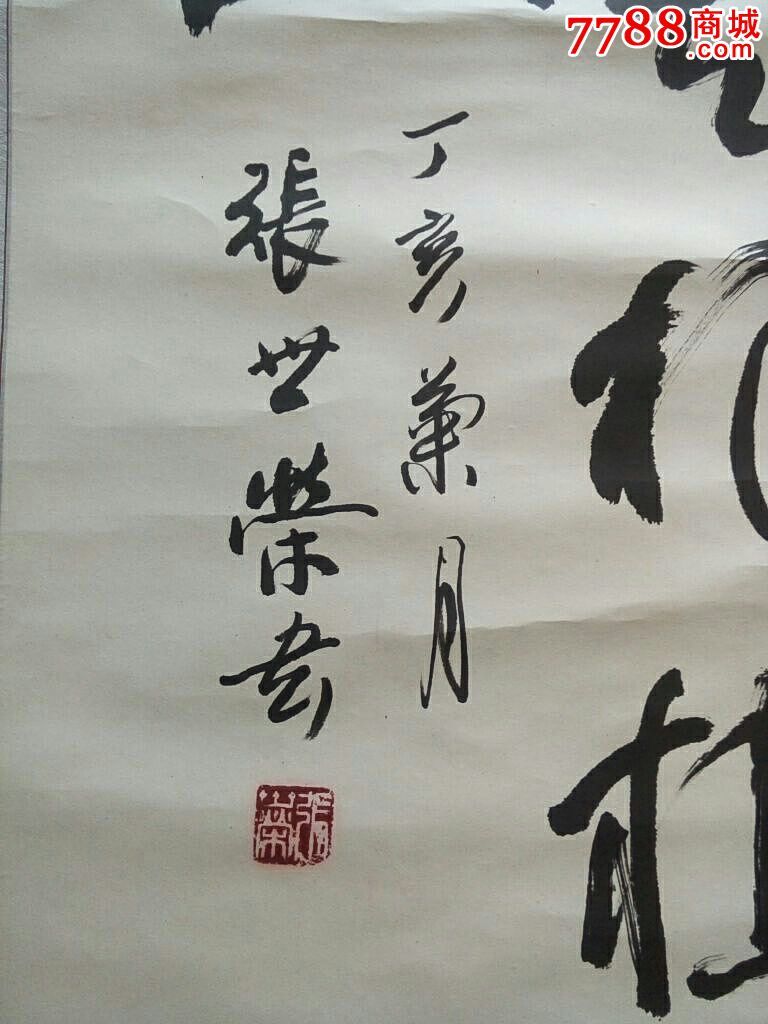 7788商城
.com
丁亥菊月
張世榮書
張榮